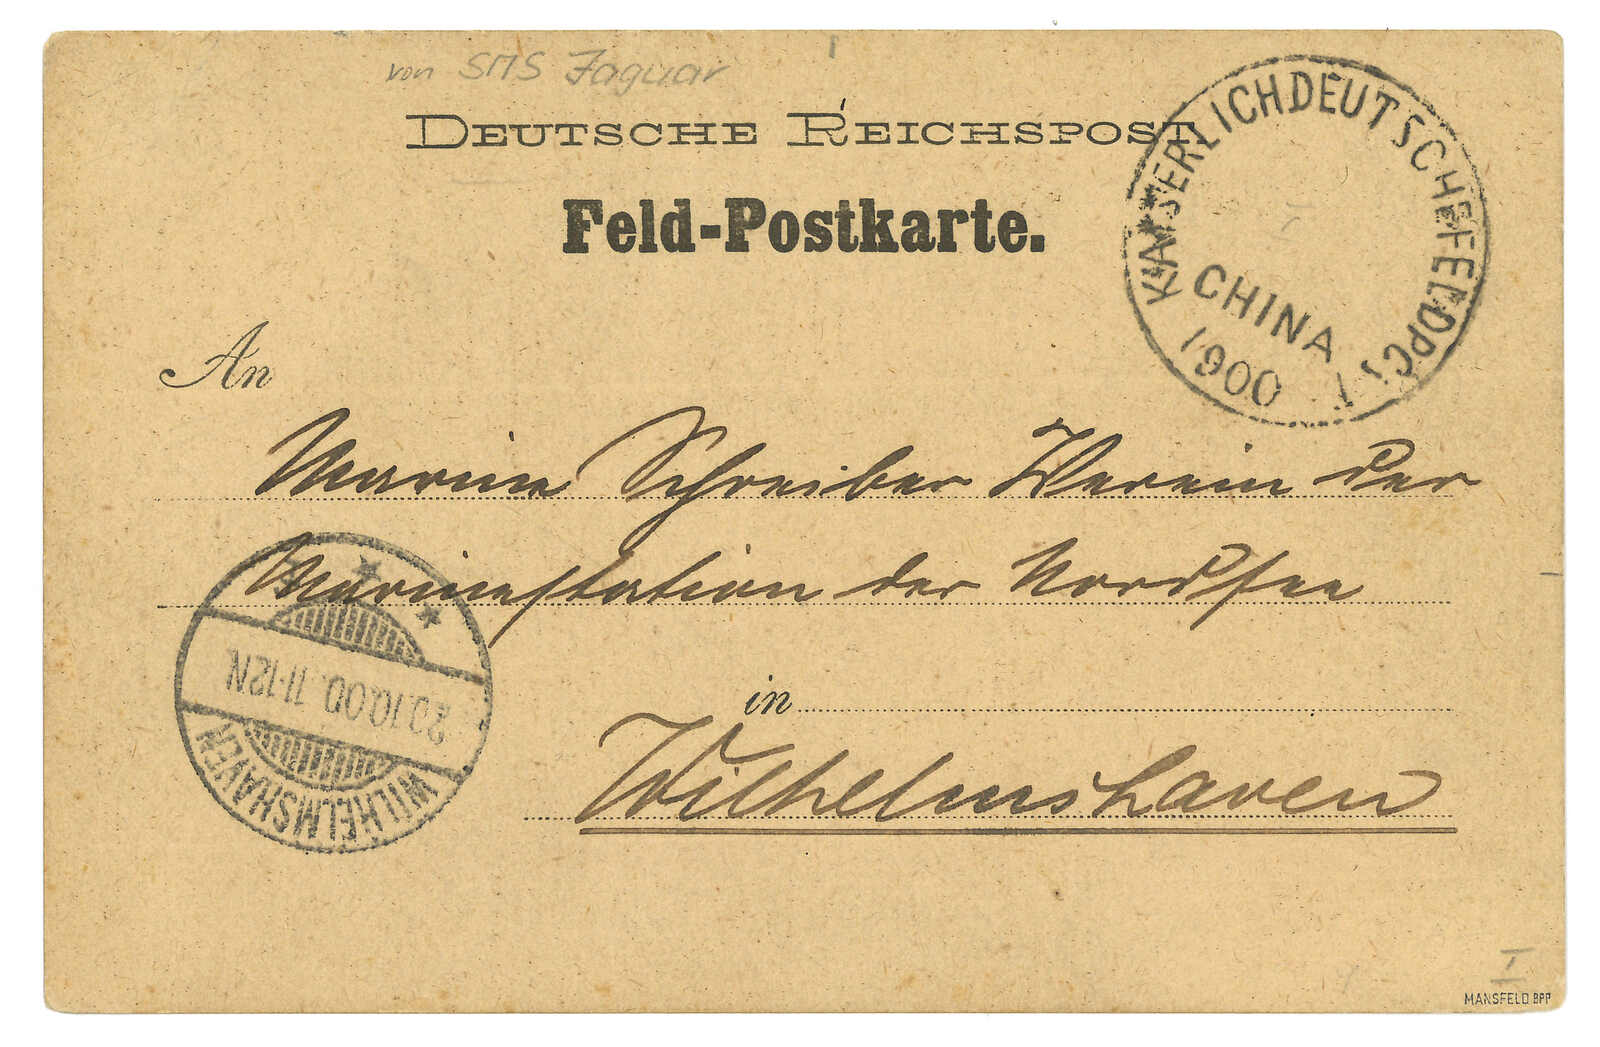 von SMS Jaguar
DEUTSCHE REICHSPOST
KAISERLICHDEUTSCHEFELDPOST
CHINA
1900
Feld-Postkarte.
An
Marine Schreiber Verein der
Marinestation der Nordsee
20.10.00. 11-12N.
WILHELMSHAVEN
in
Wilhelmshaven
I
MANSFELD BPP